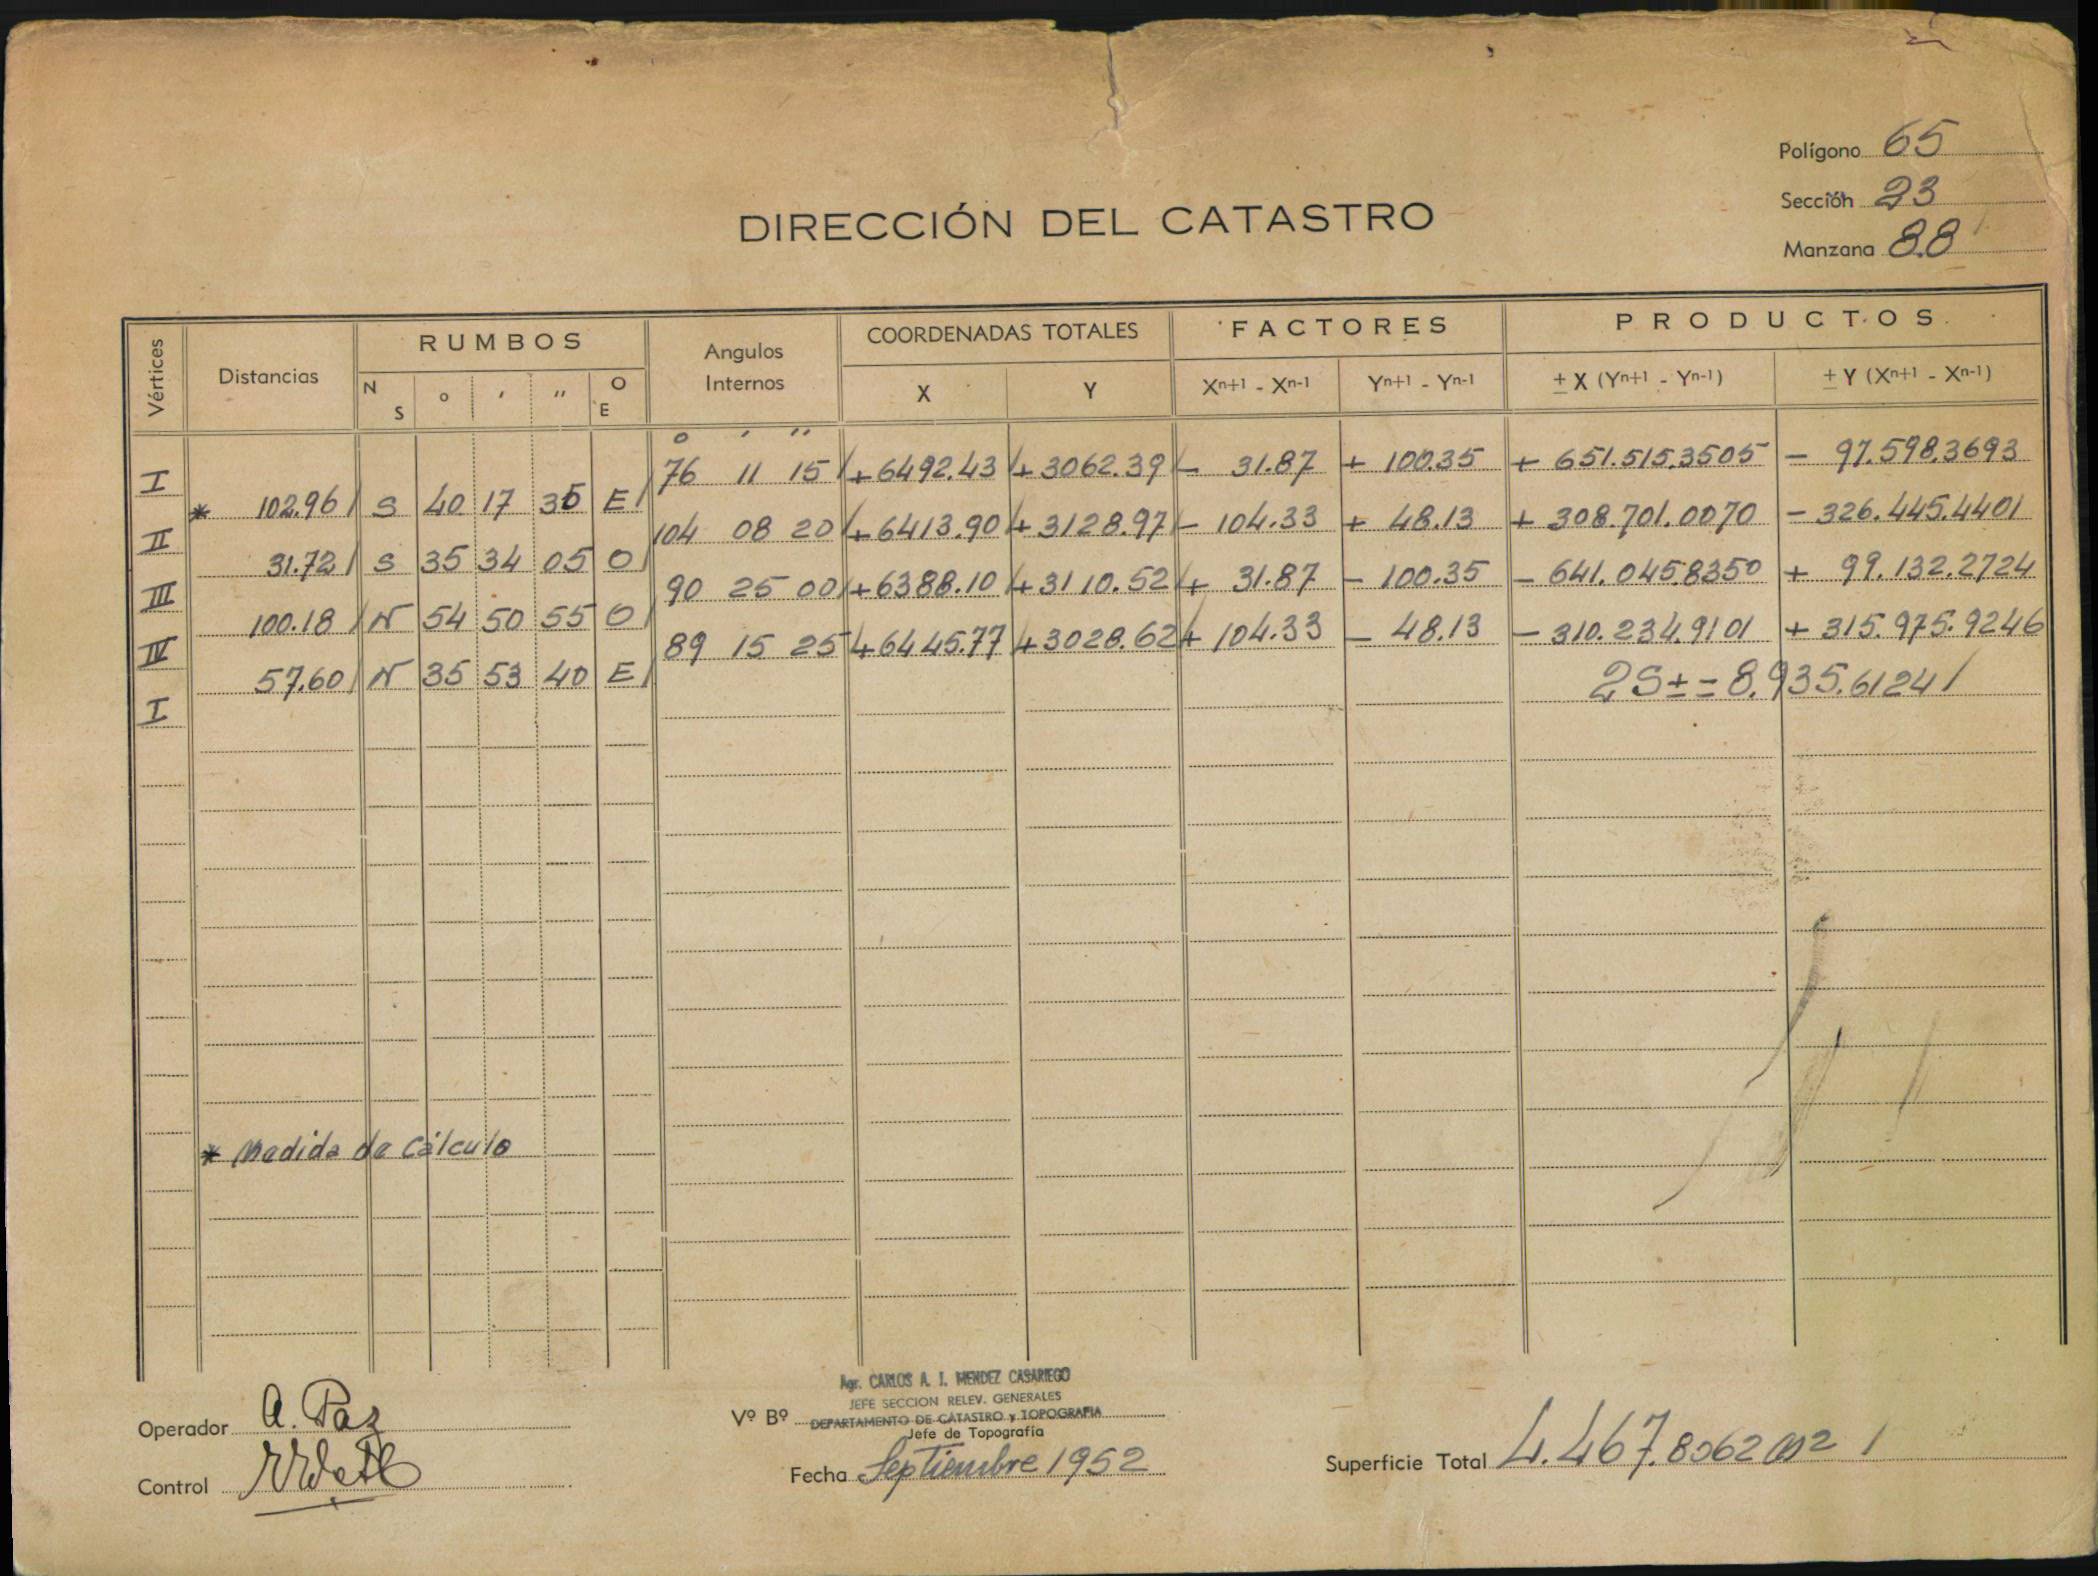 Polígono 65
Sección 23
Manzana 88
DIRECCIÓN DEL CATASTRO
Vértices Distancias RUMBOS Angulos Internos COORDENADAS TOTALES FACTORES PRODUCTOS
N S ° ' '' O E X Y Xn+1 - Xn-1 Yn+1 - Yn-1 ± X (Yn+1 - Yn-1) ± Y (Xn+1 - Xn-1)
° ' ''
I 76 11 15 + 6492.43 + 3062.39 - 31.87 + 100.35 + 651.515.3505 - 97.598.3693
* 102.96 S 40 17 35 E
II 104 08 20 + 6413.90 + 3128.97 - 104.33 + 48.13 + 308.701.0070 - 326.445.4401
31.72 S 35 34 05 O
III 90 25 00 + 6388.10 + 3110.52 + 31.87 - 100.35 - 641.045.8350 + 99.132.2724
100.18 N 54 50 55 O
IV 89 15 25 + 6445.77 + 3028.62 + 104.33 - 48.13 - 310.234.9101 + 315.975.9246
57.60 N 35 53 40 E 2S ± = 8.935.6124
I
* Medida de Cálculo
Operador A. Paz
Control
Vº Bº
Agr. CARLOS A. J. MENDEZ CASARIEGO
JEFE SECCION RELEV. GENERALES
DEPARTAMENTO DE CATASTRO y TOPOGRAFIA
Jefe de Topografía
Fecha Septiembre 1952
Superficie Total 4.467.8062 m2